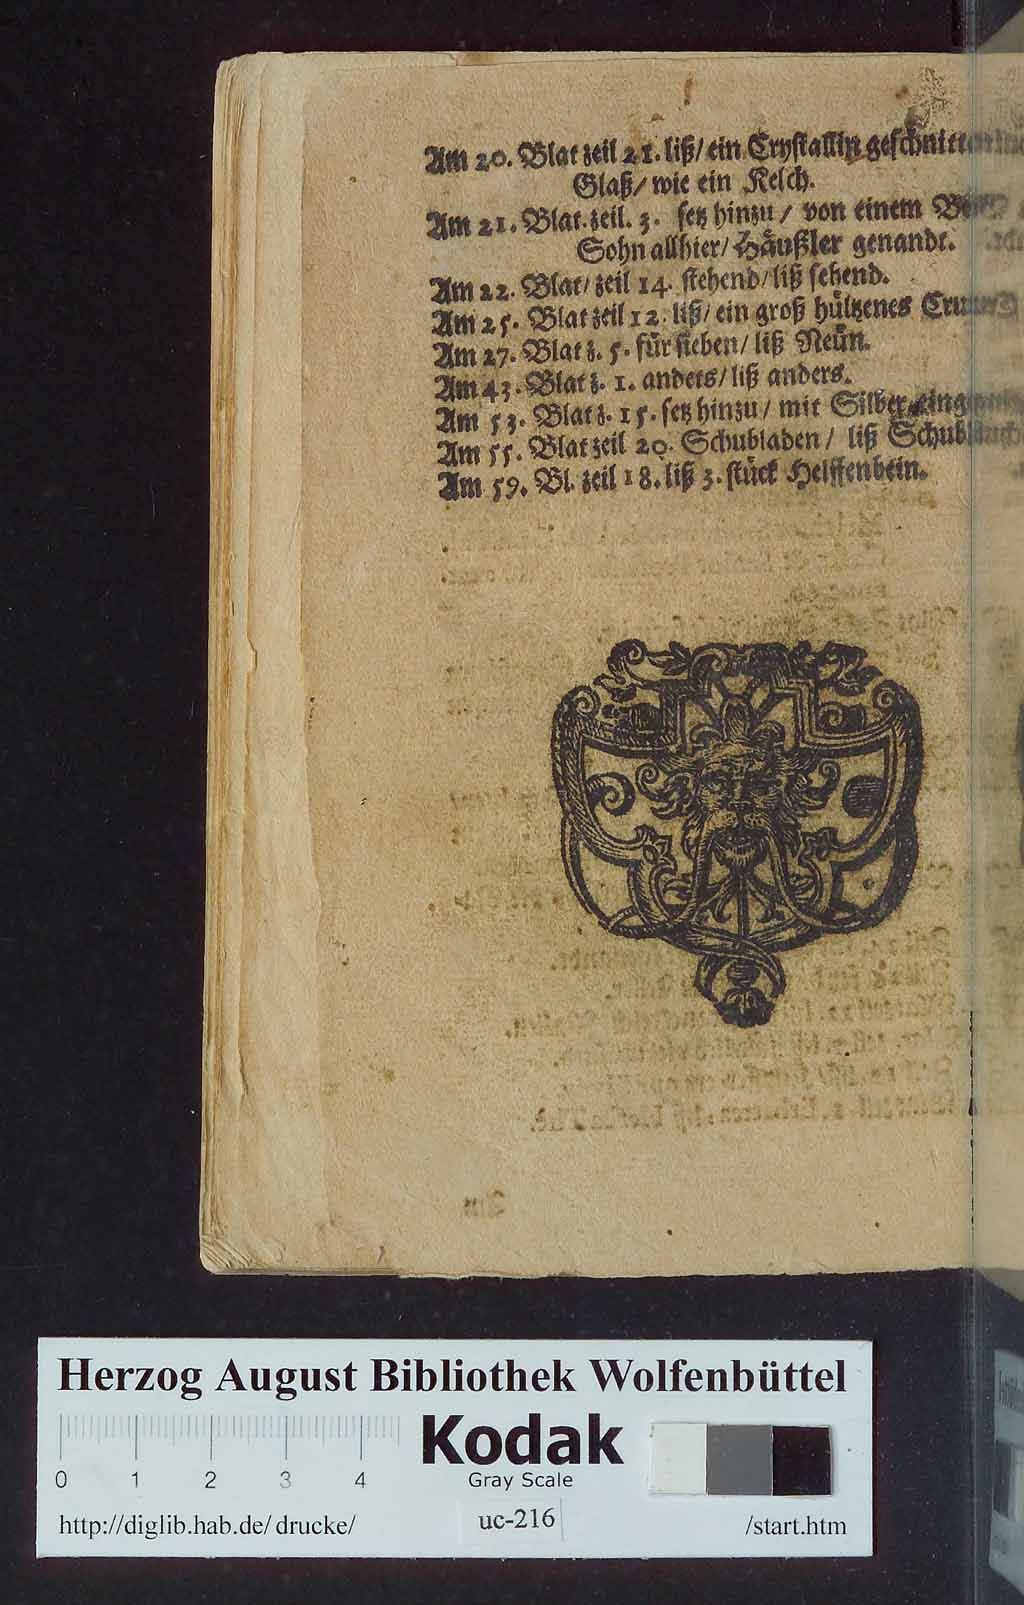 Am 20. Blat zeil 21. liß/ ein Crystallin
Glaß/ wie ein Kelch.
Am 21. Blat. zeil. 3. setz hinzu / von einem
Sohn allhier/ Häußler genandt.
Am 22. Blat/ zeil 14. stehend/ liß sehend.
Am 25. Blat zeil 12. liß/ ein groß hültzenes
Am 27. Blat z. 5. für sieben/ liß Neün.
Am 43. Blat z. 1. andets/ liß anders.
Am 53. Blat z. 15. setz hinzu/ mit Silber
Am 55. Blat zeil 20. Schubladen / liß
Am 59. Bl. zeil 18. liß 3. stück Helffenbein.
Herzog August Bibliothek Wolfenbüttel
Kodak
Gray Scale
0 1 2 3 4
http://diglib.hab.de/ drucke/ uc-216 /start.htm